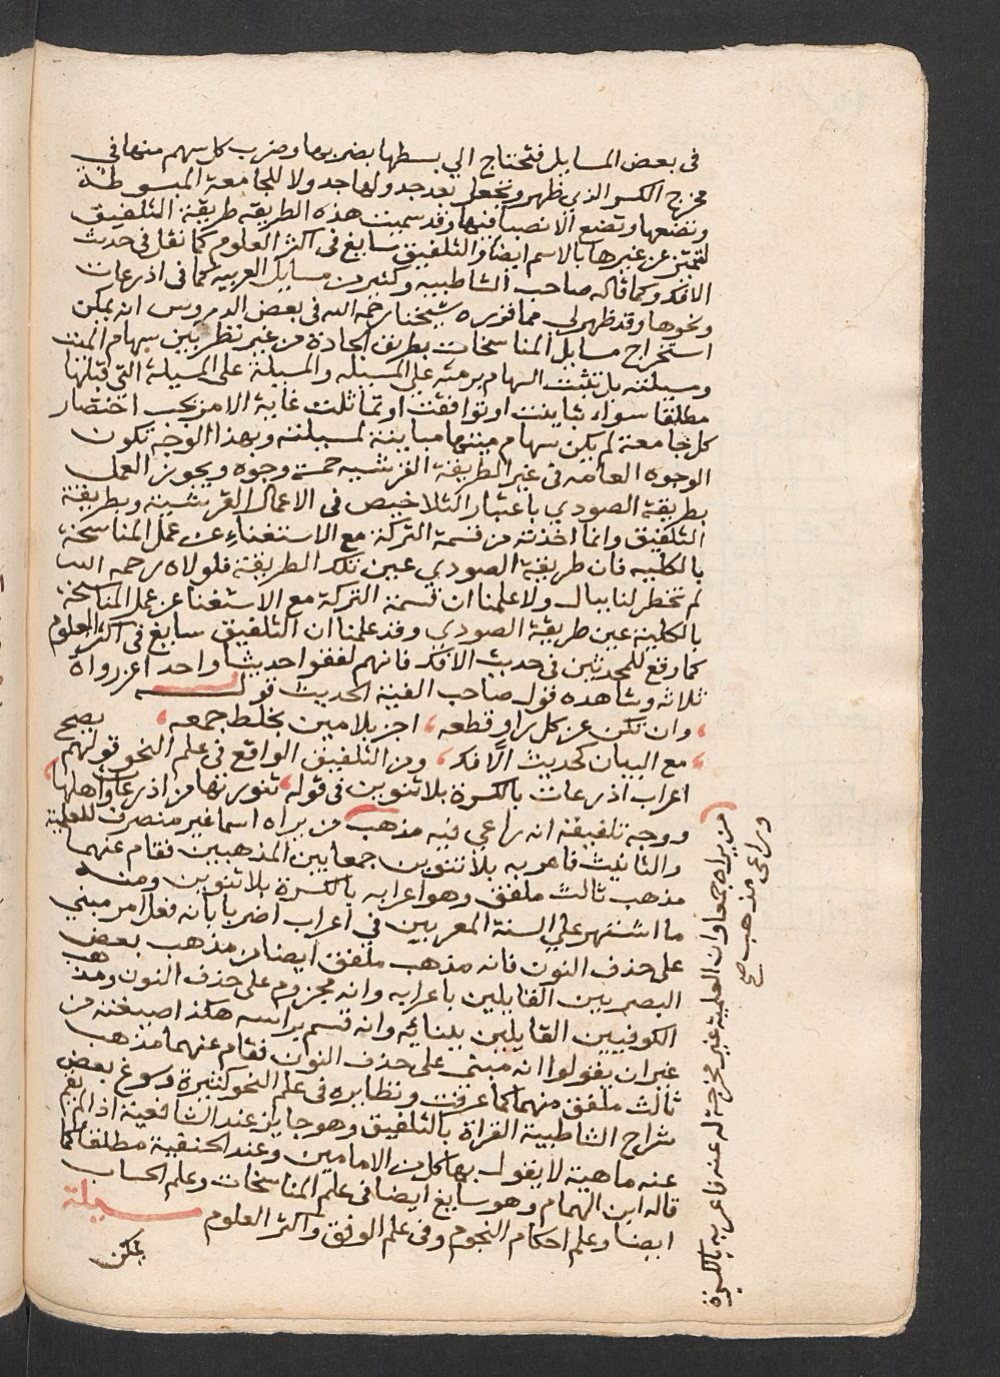 فى بعض المسايل فتحتاج الي بسطها بضربها وضرب كل سهم منها في
مخرج الكسر الذي ظهر وتجعل بعد جدولها جدولا للجامعة المبسوطة
وتضعها وتضع الانصبا فيها وقد سميت هذه الطريقه طريقة التلفيق
لتتميز عن غيرها بالاسم ايضا والتلفيق سايغ فى اكثر العلوم كما نقل فى حديث
الافك وكما قاله صاحب الشاطبيه وكثير من مسايل العربيه كما فى اذرعات
ونحوها وقد ظهر لي مما قرره شيخنا رحمه الله فى بعض الدروس انه يمكن
استخراج مسايل المناسخات بطريق الجادة من غير نظر بين سهام الميت
ومسيلته بل تثبت السهام برمته علي المسيله والمسيلة على المسيلة التي قبلها
مطلقا سواء تباينت او توافقت او تماثلت غاية الامر يجب اختصار
كل جامعة لم يكن سهام ميتها مباينة لمسيلته وبهذا الوجه تكون
الوجوه العامه فى غير الطريقة القرشيه خمسة وجوه ويجوز العمل
بطريقة الصودي باعتبار التلاخيص فى الاعمال القرشية وبطريقة
التلفيق وانما اخذته من قسمة التركة مع الاستغناء عن عمل المناسخة
بالكليه فان طريقة الصودي عين تلك الطريقة فلولاه رحمه الله
لم تخطر لنا ببال ولا علمنا ان قسمة التركة مع الاستغنا عن عمل المناسخة
بالكلية عين طريقة الصودي وقد علمنا ان التلفيق سايغ فى اكثر العلوم
كما وقع للمحدثين فى حديث الافك فانهم لفقوا حديثا واحدا عن رواة
ثلاثه وشاهده قول صاحب الفية الحديث قولــه
وان تكن عن كل راو قطعه ، اجز بلا مين بخلط جمعه ،
مع البيان كحديث الافك ، ومن التلفيق الواقع فى علم النحو قولهم يصح
اعراب اذرعات بالكسرة بلا تنوين فى قوله ، تنورتها من اذرعات واهلها ،
ووجه تلفيقه انه راعي فيه مذهب من يراه اسما غير منصرف للعلمية
والتانيث فاعربه بلا تنوين جمعا بين المذهبين فقام عنهما
مذهب ثالث ملفق وهو اعرابه بالكسرة بلا تنوين ومنه
ما اشتهر علي السنة المعربين فى اعراب اضربا بانه فعل امر مبني
على حذف النون فانه مذهب ملفق ايضا من مذهب بعض
البصريين القايلين باعرابه وانه مجزوم على حذف النون ومذهب
الكوفيين القايلين ببنائه وانه قسم براسه هكذا صيغته من
غير ان يقولوا انه مبني على حذف النون فقام عنهما مذهب
ثالث ملفق منهما كما عرفت ونظايره فى علم النحو كثيرة وسوغ بعض
شراح الشاطبية القراة بالتلفيق وهو جايز عند الشافعية اذا لم يقم
عنه ماهية لا يقول بها كل من الامامين وعند الحنفية مطلقا كما
قاله ابن الهمام وهو سايغ ايضا فى علم المناسخات وعلم الحساب
ايضا وعلم احكام النجوم وفى علم الوفق واكثر العلوم مسيلة
يمكن
وراعى مذهب
من يراه جمعا وان العلمية غير مخرجة له عنه فاعربه بالكسرة
صح